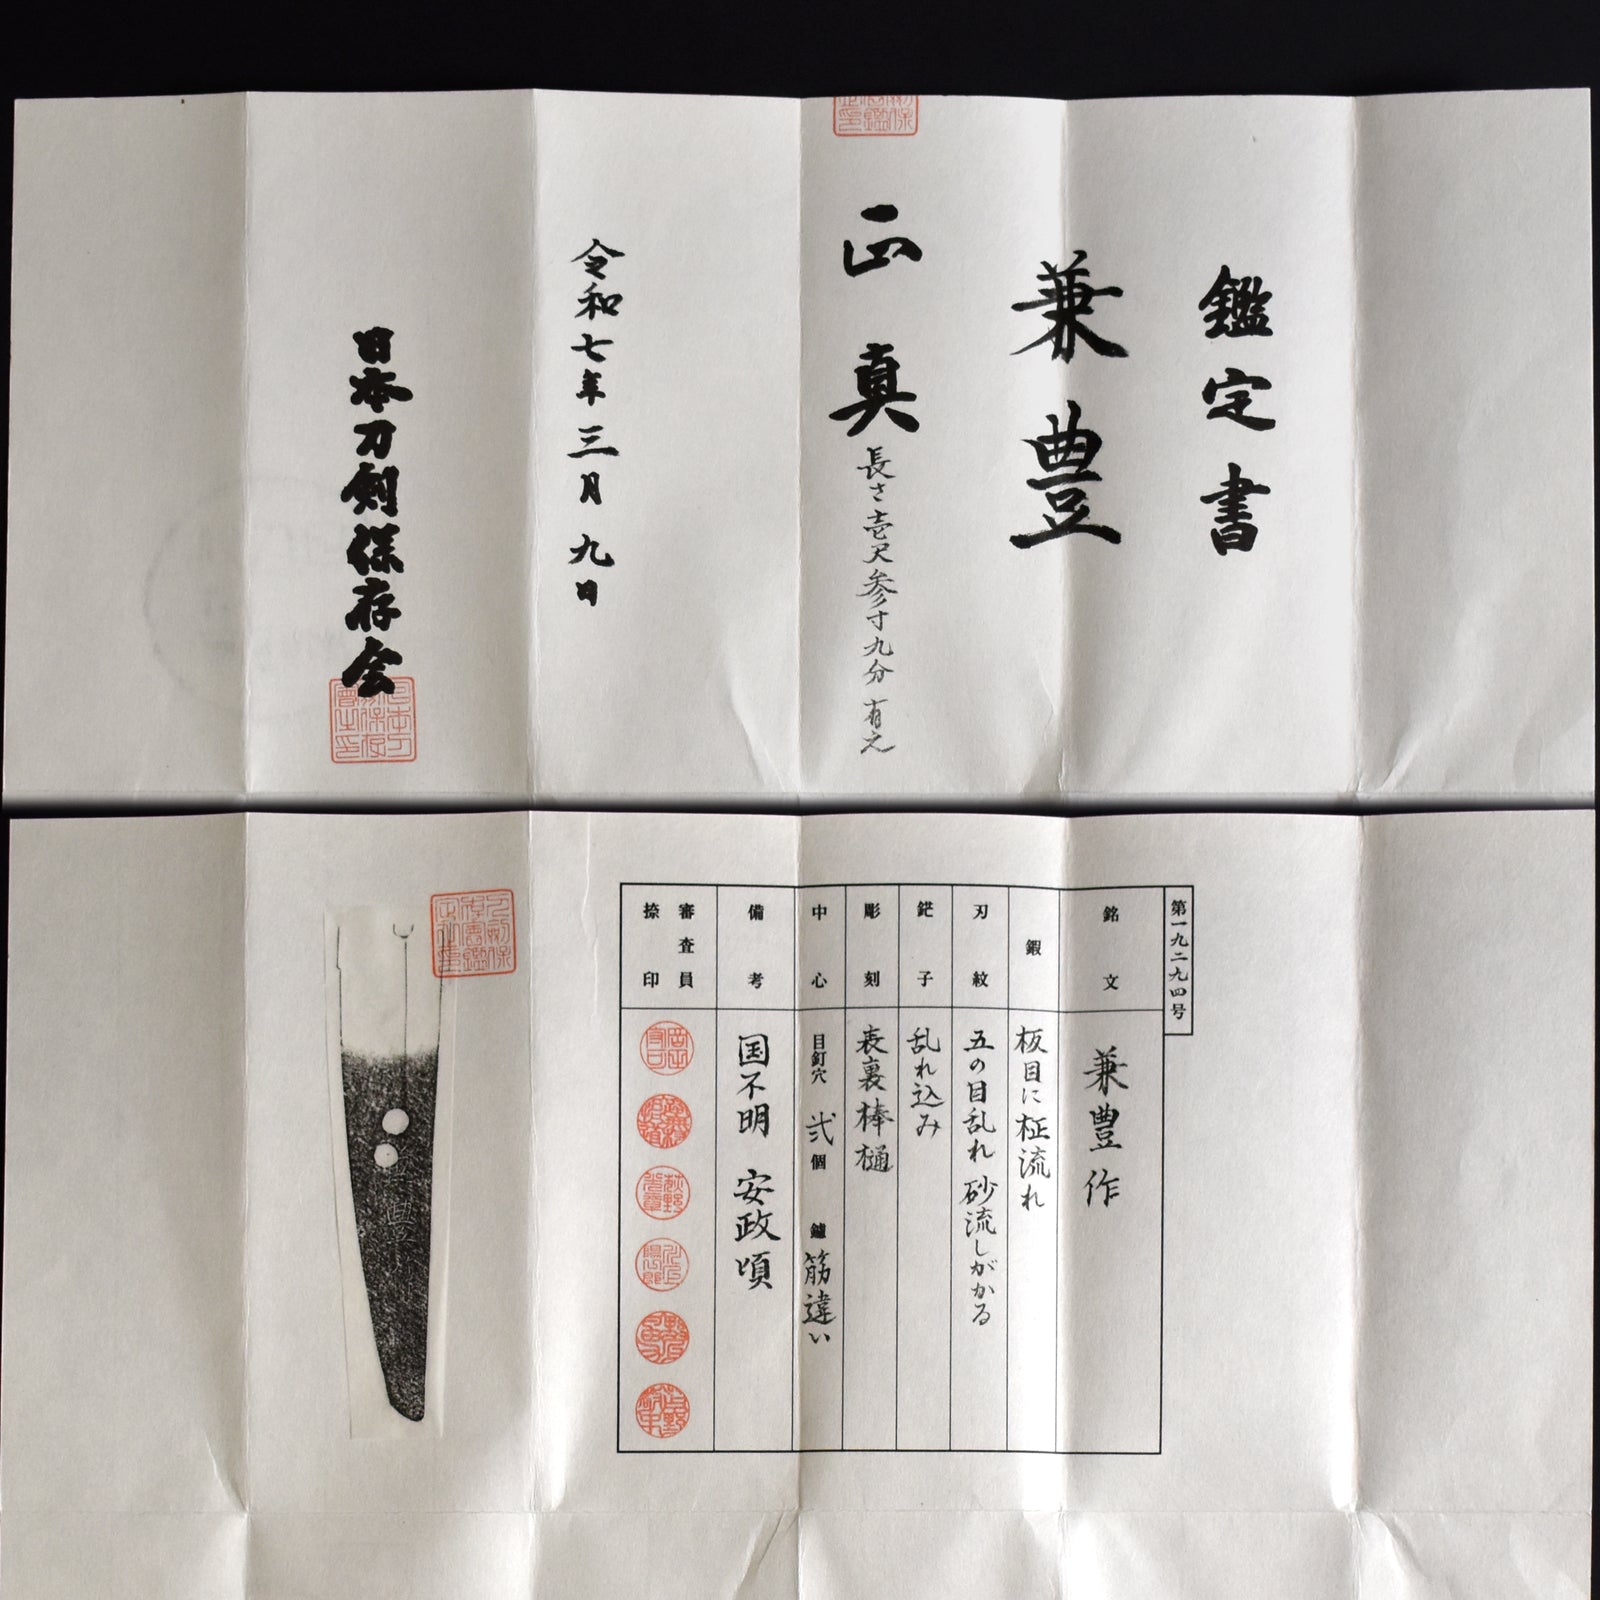 鑑定書
兼豊
正真 長さ壱尺参寸九分 有之
令和七年三月九日
日本刀剣保存会
第一九二九四号
銘文 兼豊作
鍜 板目に柾流れ
刃紋 五の目乱れ 砂流しがかる
鋩子 乱れ込み
彫刻 表裏棒樋
中心 目釘穴 弐個 鑢 筋違い
備考 国不明 安政頃
審査員
捺印